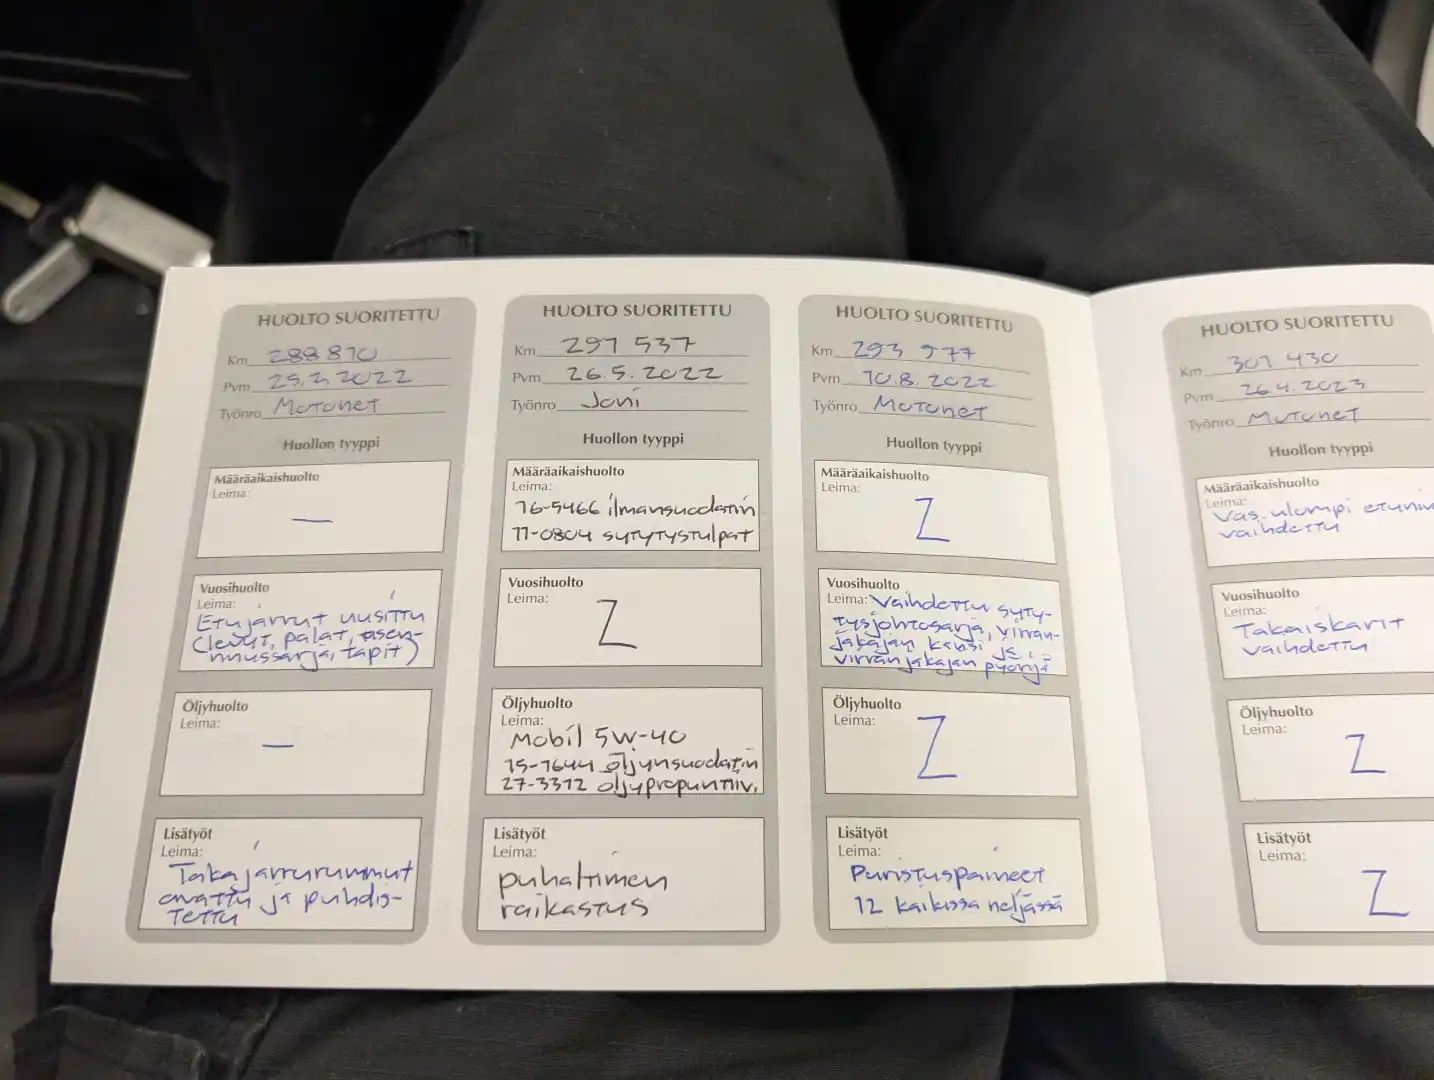 HUOLTO SUORITETTU
Km 288 810
Pvm 25.2.2022
Työnro Motonet
Huollon tyyppi
Määräaikaishuolto
Leima:
—
Vuosihuolto
Leima:
Etujarrut uusittu
(levyt, palat, asen-
nussarja, tapit)
Öljyhuolto
Leima:
—
Lisätyöt
Leima:
Takajarrurummut
avattu ja puhdis-
tettu
HUOLTO SUORITETTU
Km 291 537
Pvm 26.5.2022
Työnro Joni
Huollon tyyppi
Määräaikaishuolto
Leima:
16-5466 ilmansuodatin
11-0804 sytytystulpat
Vuosihuolto
Leima:
Z
Öljyhuolto
Leima:
Mobil 5W-40
15-1644 öljynsuodatin
27-3312 öljyproputiiv.
Lisätyöt
Leima:
puhaltimen
raikastus
HUOLTO SUORITETTU
Km 293 977
Pvm 10.8.2022
Työnro Motonet
Huollon tyyppi
Määräaikaishuolto
Leima:
Z
Vuosihuolto
Leima: Vaihdettu syty-
tysjohtosarja, virran-
jakajan kansi ja
virranjakajan pyörijä
Öljyhuolto
Leima:
Z
Lisätyöt
Leima:
Puristuspaineet
12 kaikissa neljässä
HUOLTO SUORITETTU
Km 301 430
Pvm 26.4.2023
Työnro Motonet
Huollon tyyppi
Määräaikaishuolto
Leima:
Vas. ulompi
vaihdettu
Vuosihuolto
Leima:
Takaiskarit
vaihdettu
Öljyhuolto
Leima:
Z
Lisätyöt
Leima:
Z